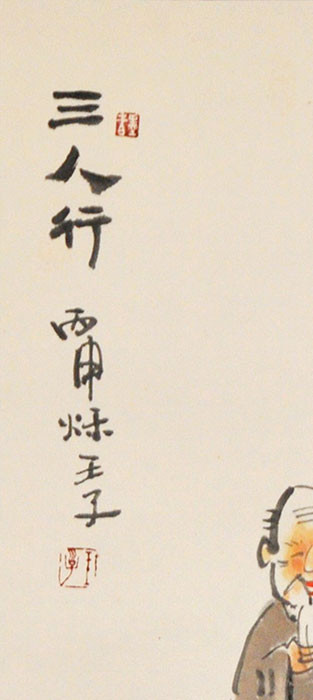 三人行
丙申烁王子